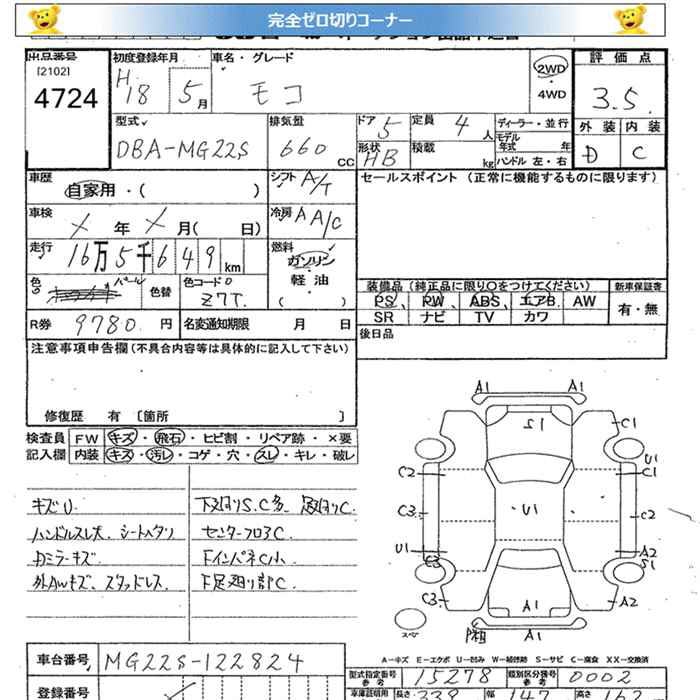 完全ゼロ切りコーナー
出品番号 初度登録年月 車名・グレード 2WD ・ 4WD 評価点
[2102]
4724 H18 5月 モコ 3.5
外装 内装
D C
型式 排気量 ドア 5 定員 4人 ディーラー・並行
DBA-MG22S 660 CC 形状 HB 積載 kg モデル年式 年
ハンドル 左・右
車歴 シフト A/T セールスポイント (正常に機能するものに限ります)
自家用・( )
車検 年 月( 日) 冷房 A A/C
走行 16万5千649km 燃料
ガソリン
軽油
( )
色 パール 色替 色コード
Z7T 装備品(純正品に限り○をつけてください) 新車保証書
PS PW ABS エアB AW 有・無
SR ナビ TV カワ
R券 9780円 名変通知期限 月 日 後日品
注意事項申告欄(不具合内容等は具体的に記入して下さい)
修復歴 有 [箇所 ]
検査員 FW キズ・飛石・ヒビ割・リペア跡・×要
記入欄 内装 キズ・汚レ・コゲ・穴・スレ・キレ・破レ
キズU 下回りS.C多、足回りC
ハンドルスレ大、シートヘタリ センターフロアC
Dミラーキズ FインパネC小
外AWキズ、スタッドレス F足廻り部C
A1 A1
21 C1
U1
C2 C1
C3 U1 C2
U1 A2
C3 S1
C3 A1 A2
スペア A1
A−キズ E−エクボ U−凹み W−補修跡 S−サビ C−腐食 XX−交換済
車台番号 MG22S-122824 型式指定番号 15278 類別区分番号 0002
参考 参考
登録番号 車庫証明用 長さ 339 幅 147 高さ 162